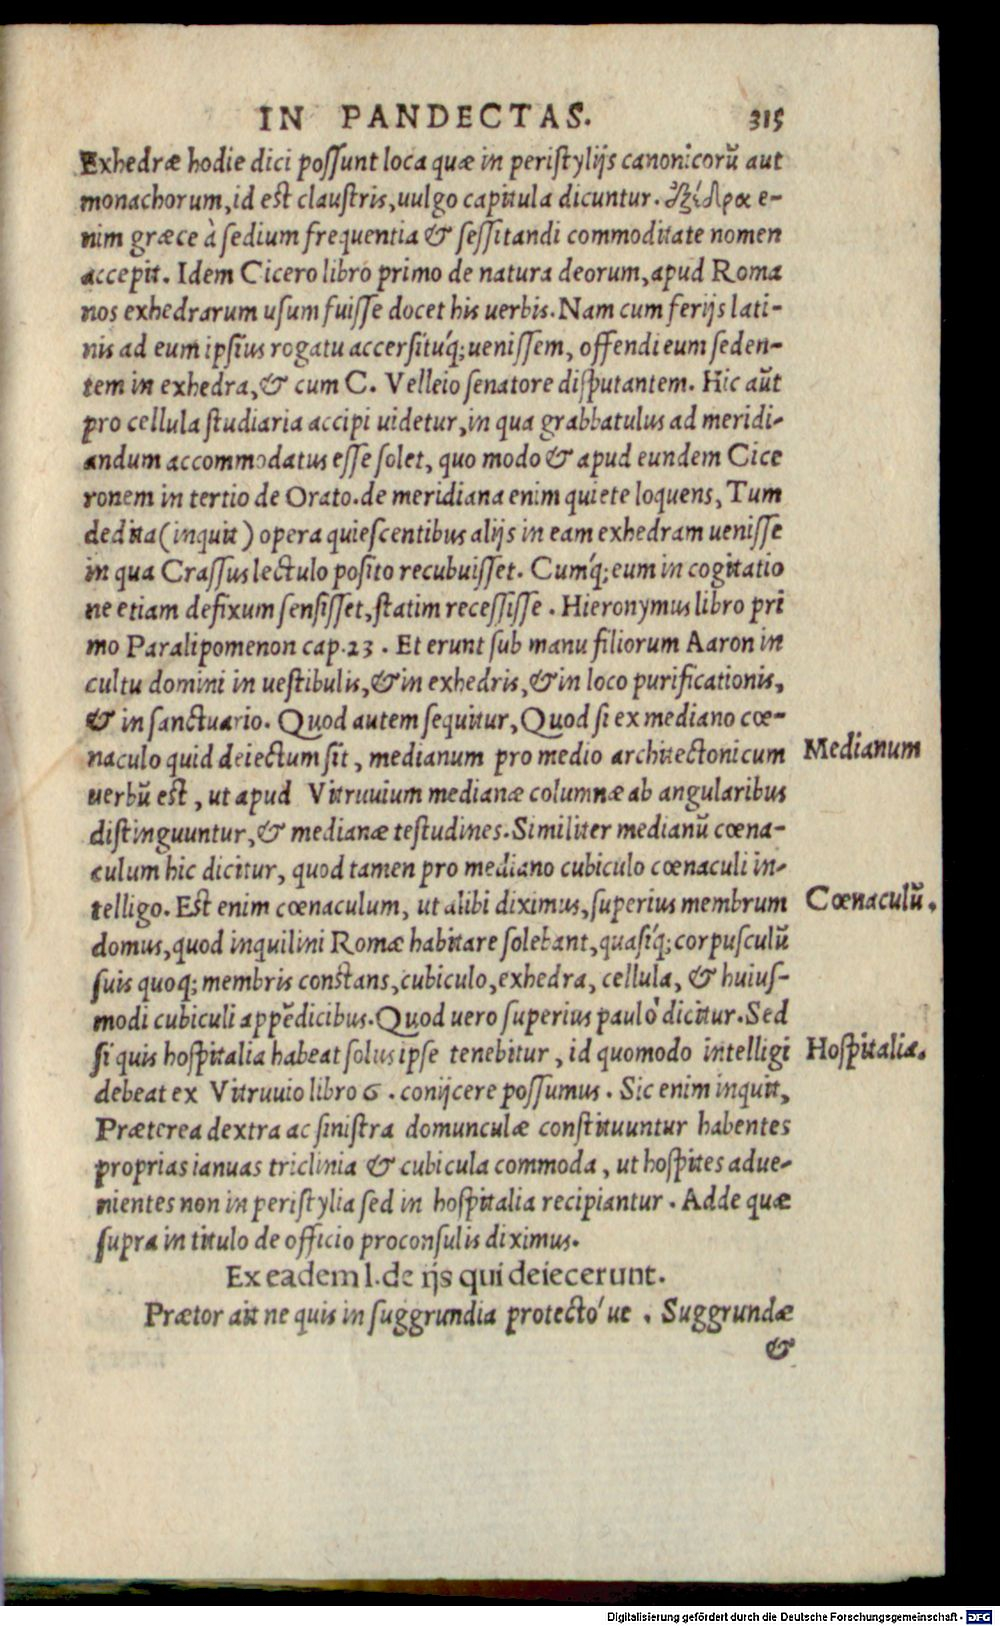 IN PANDECTAS. 315
Exhedræ hodie dici possunt loca quæ in peristylijs canonicorũ aut
monachorum, id est claustris, uulgo capitula dicuntur. ἐξέδρα e-
nim græce à sedium frequentia & sessitandi commoditate nomen
accepit. Idem Cicero libro primo de natura deorum, apud Roma
nos exhedrarum usum fuisse docet his uerbis. Nam cum ferijs lati-
nis ad eum ipsius rogatu accersitúq; uenissem, offendi eum seden-
tem in exhedra, & cum C. Velleio senatore disputantem. Hic aũt
pro cellula studiaria accipi uidetur, in qua grabbatulus ad meridi-
andum accommodatus esse solet, quo modo & apud eundem Cice
ronem in tertio de Orato. de meridiana enim quiete loquens, Tum
dedita (inquit) opera quiescentibus alijs in eam exhedram uenisse
in qua Crassus lectulo posito recubuisset. Cumq́; eum in cogitatio
ne etiam defixum sensisset, statim recessisse. Hieronymus libro pri
mo Paralipomenon cap. 23. Et erunt sub manu filiorum Aaron in
cultu domini in uestibulis, & in exhedris, & in loco purificationis,
& in sanctuario. Quod autem sequitur, Quod si ex mediano cœ-
naculo quid deiectum sit, medianum pro medio architectonicum
Medianum
uerbũ est, ut apud Vitruuium medianæ columnæ ab angularibus
distinguuntur, & medianæ testudines. Similiter medianũ cœna-
culum hic dicitur, quod tamen pro mediano cubiculo cœnaculi in-
telligo. Est enim cœnaculum, ut alibi diximus, superius membrum
Cœnaculũ.
domus, quod inquilini Romæ habitare solebant, quasiq́; corpusculũ
suis quoq; membris constans, cubiculo, exhedra, cellula, & huius-
modi cubiculi appẽdicibus. Quod uero superius paulò dicitur. Sed
si quis hospitalia habeat solus ipse tenebitur, id quomodo intelligi
Hospitalia.
debeat ex Vitruuio libro 6. conijcere possumus. Sic enim inquit,
Præterea dextra ac sinistra domunculæ constituuntur habentes
proprias ianuas triclinia & cubicula commoda, ut hospites adue-
nientes non in peristylia sed in hospitalia recipiantur. Adde quæ
supra in titulo de officio proconsulis diximus.
Ex eadem l. de ijs qui deiecerunt.
Prætor ait ne quis in suggrundia protectó ue. Suggrundæ
&
Digitalisierung gefördert durch die Deutsche Forschungsgemeinschaft - DFG